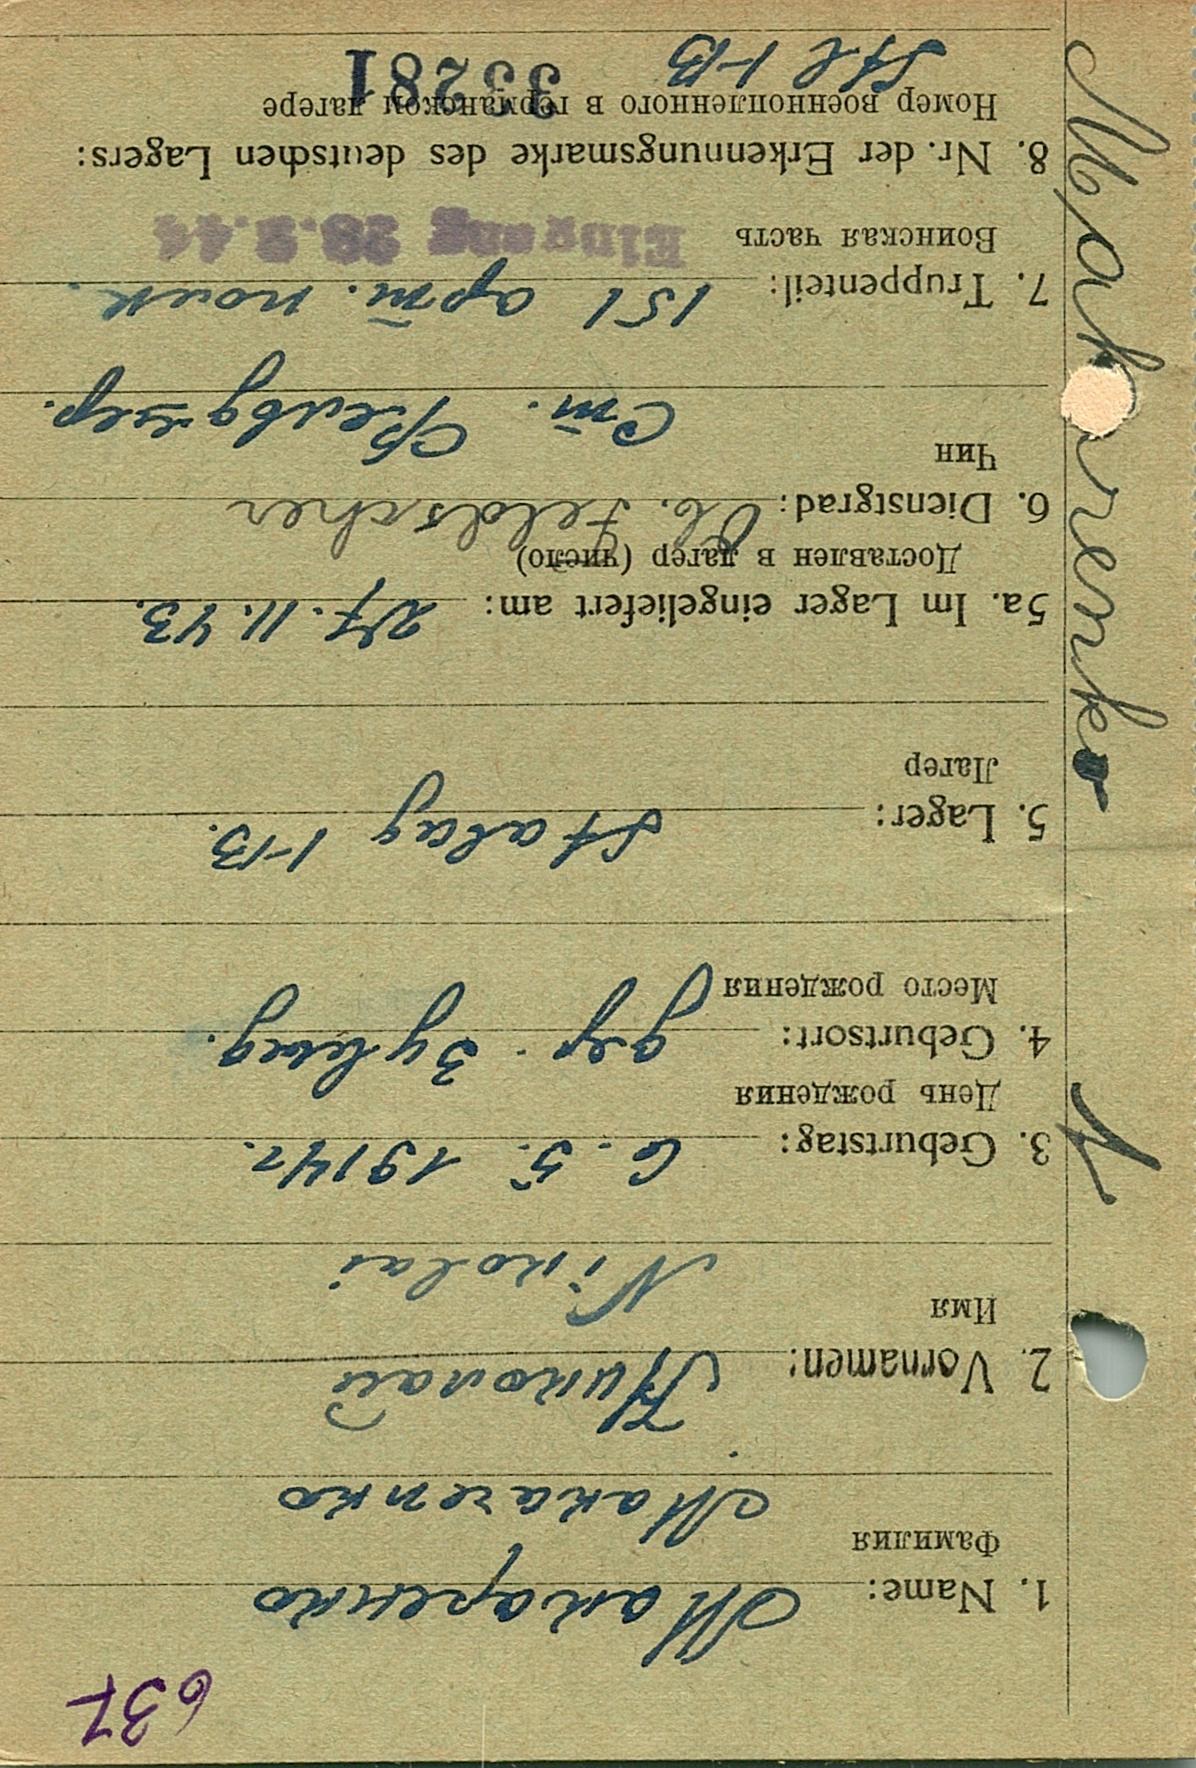 637
1. Name: Макаренко
Фамилия
Makarenko
2. Vornamen: Николай
Имя
Nikolai
3. Geburtstag: 6. 5. 1914 г.
День рождения
4. Geburtsort: дер.
Место рождения
5. Lager: Stalag I-B.
Лагер
5a. Im Lager eingeliefert am: 27. 11. 43.
Доставлен в лагер (число)
6. Dienstgrad: Feldscher
Чин
Ст. Фельдшер.
7. Truppenteil: 151 арт. полк.
Воинская часть
Eingang 28.2.44
8. Nr. der Erkennungsmarke des deutschen Lagers:
Номер военнопленного в германском лагере
33281
I-B
Makarenko